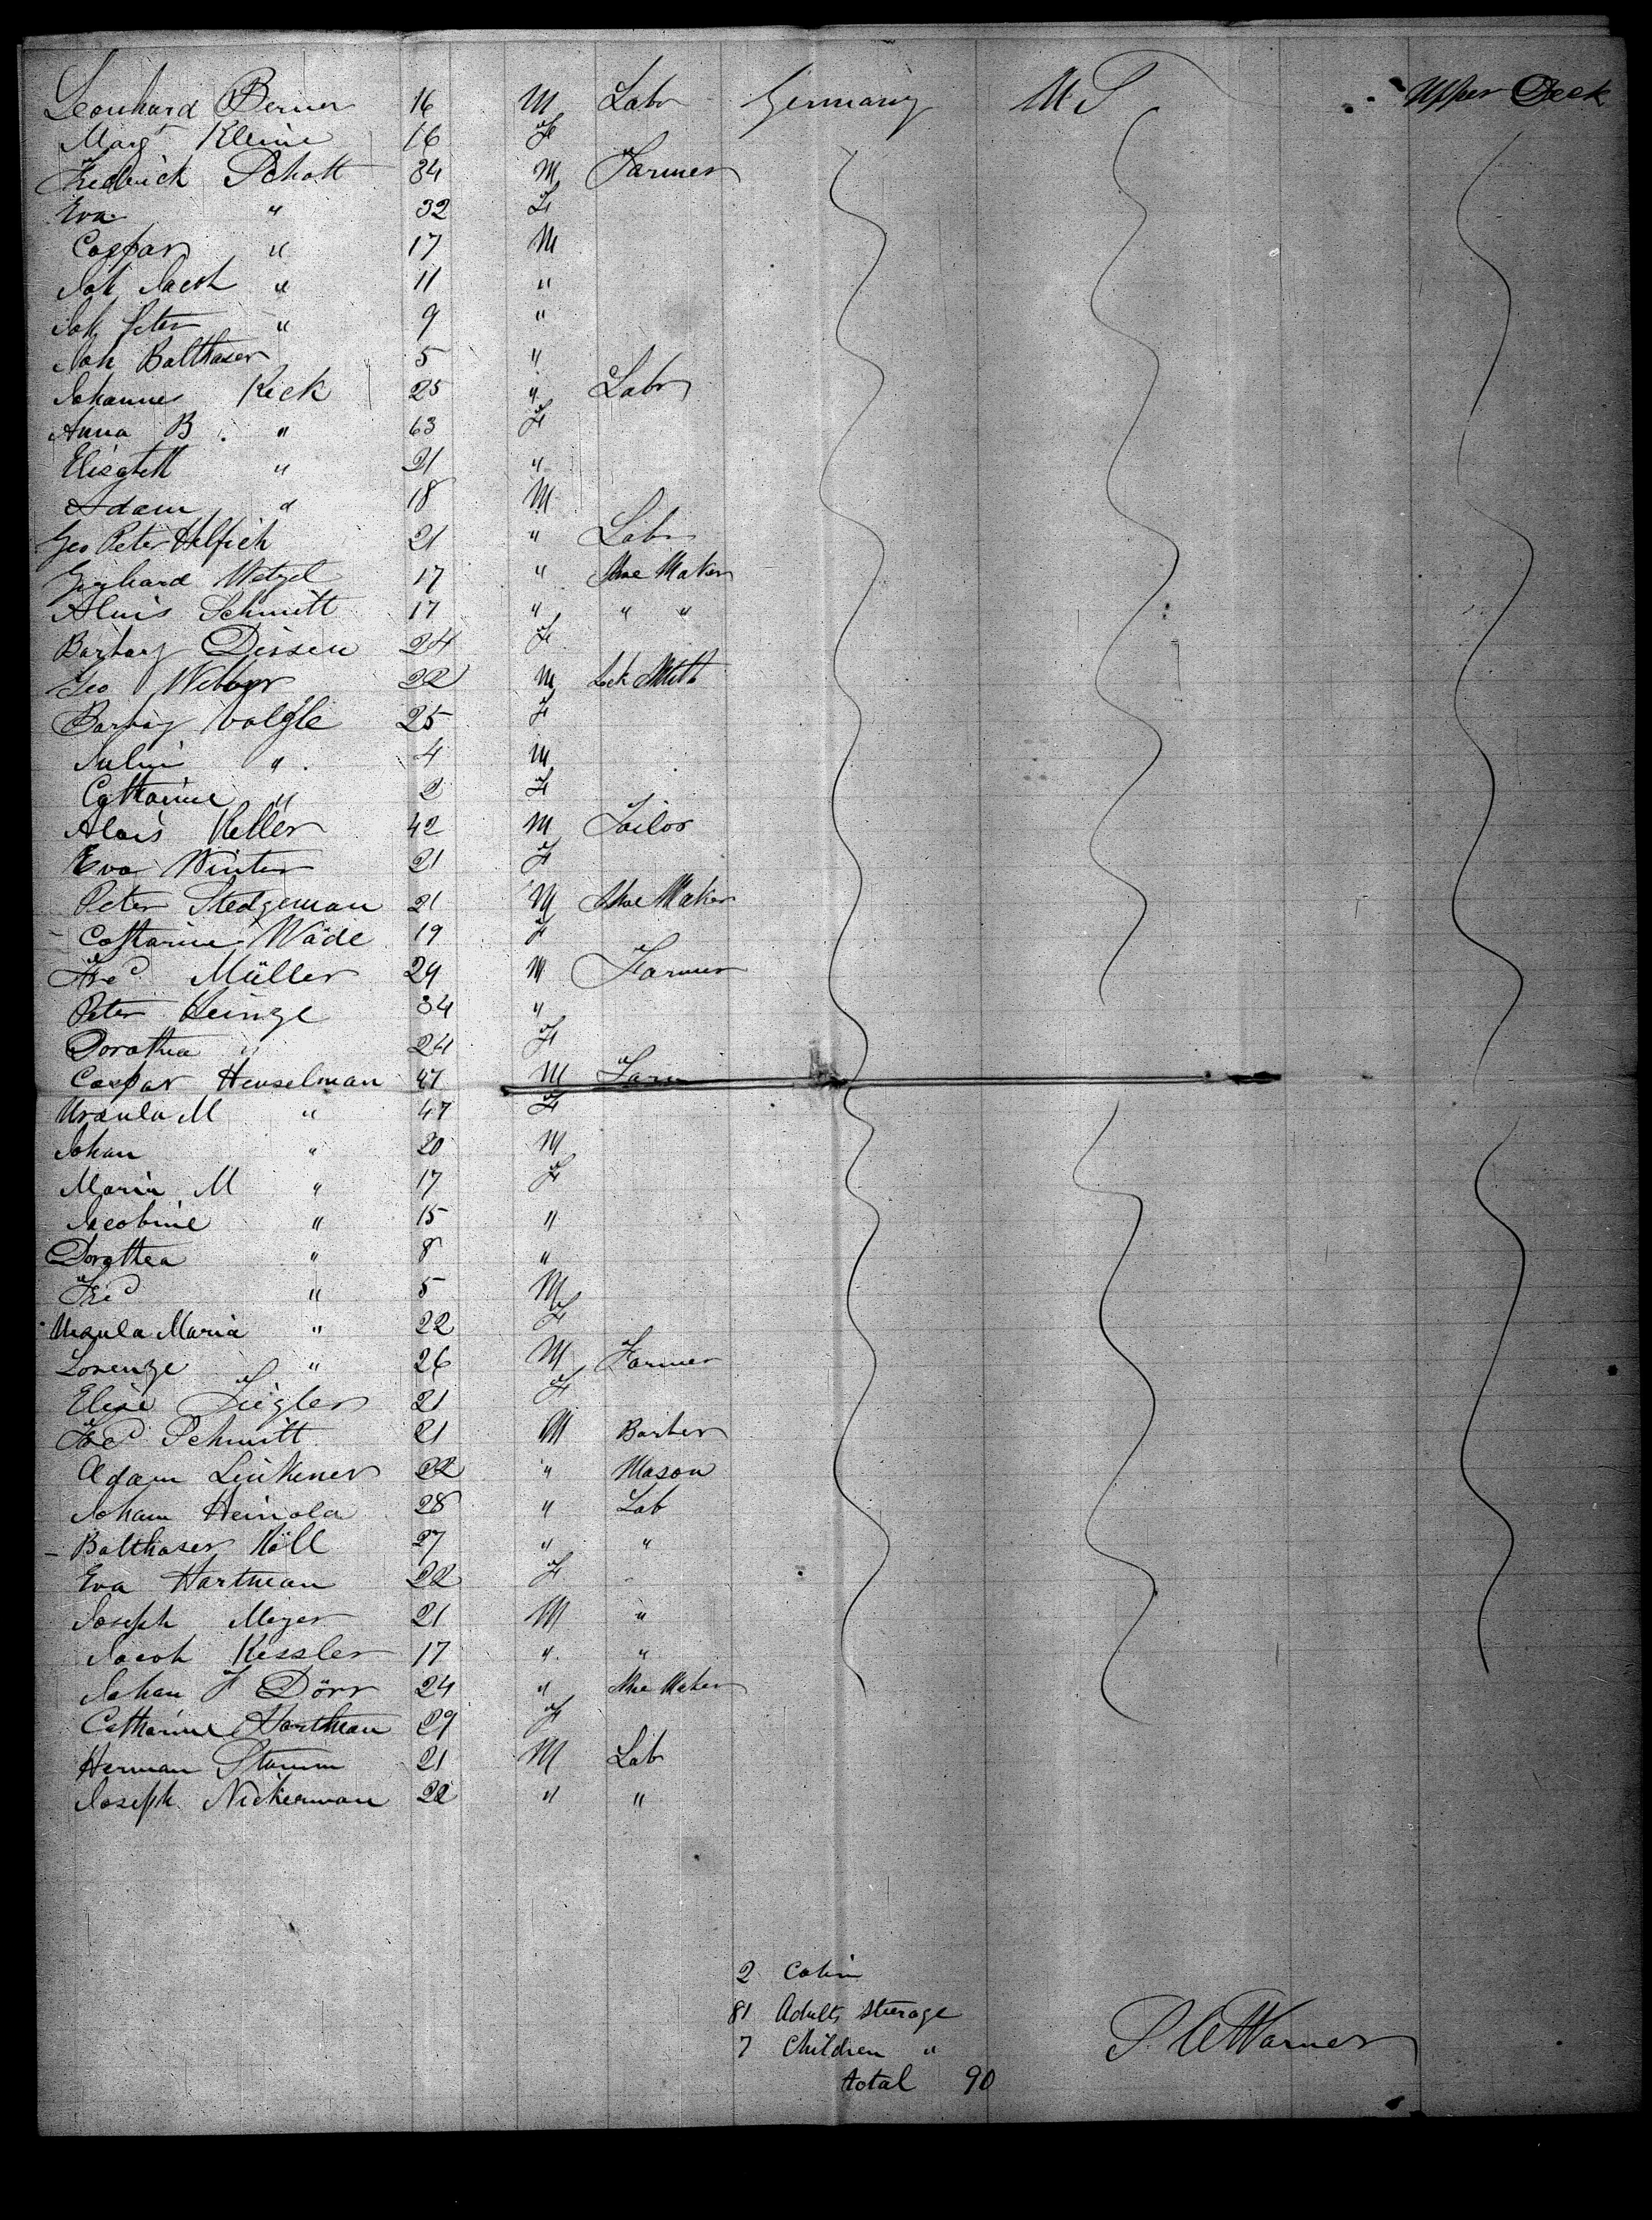 Leonhard Berner 16 M Labr Germany U S Upper Deck
Margt Kleine 16 F
Fredrick Schott 34 M Farmer
Eva " 32 F
Caspar " 17 M
Joh Jacob " 11 "
Joh Peter " 9 "
Joh Balthaser 5 "
Johannes Keck 25 " Labr
Anna B. " 63 F
Elisabeth " 21 "
Adam " 18 M
Geo Peter Helfich 21 " Labr
Gerhard Wetzel 17 " Shoe Maker
Aluis Schmitt 17 " " "
Barbary Dissen 24 F
Geo Weber 22 M Lock Smith
Barbary 25 F
Julius " 4 M
Catharine " 2 F
Alois Keller 42 M Tailor
Eva Winter 21 F
Peter Stedgeman 21 M Shoe Maker
Catharine Wäde 19 F
Fred Müller 29 M Farmer
Peter Heinze 34 "
Dorothea " 24 F
Caspar Henselman 47 M Farm
Ursula M " 47 F
Johan " 20 M
Maria M " 17 F
Jacobine " 15 "
Dorothea " 8 "
Fred " 5 M
Ursula Maria " 22 F
Lorenze " 26 M Farmer
Elise Ziegler 21 F
Fred Schmitt 21 M Barber
Adam Linkener 22 " Mason
Johann Heinola 28 " Lab
Balthaser Köll 27 " "
Eva Hartman 22 F
Joseph Meyer 21 M "
Jacob Kessler 17 " "
Johan F Dörr 24 " Shoe Maker
Catharine Hartman 29 F
Herman Stumm 21 M Lab
Joseph Nickerman 22 " "
2 Cabin
81 Adults steerage
7 Children "
total 90
S. W Warner